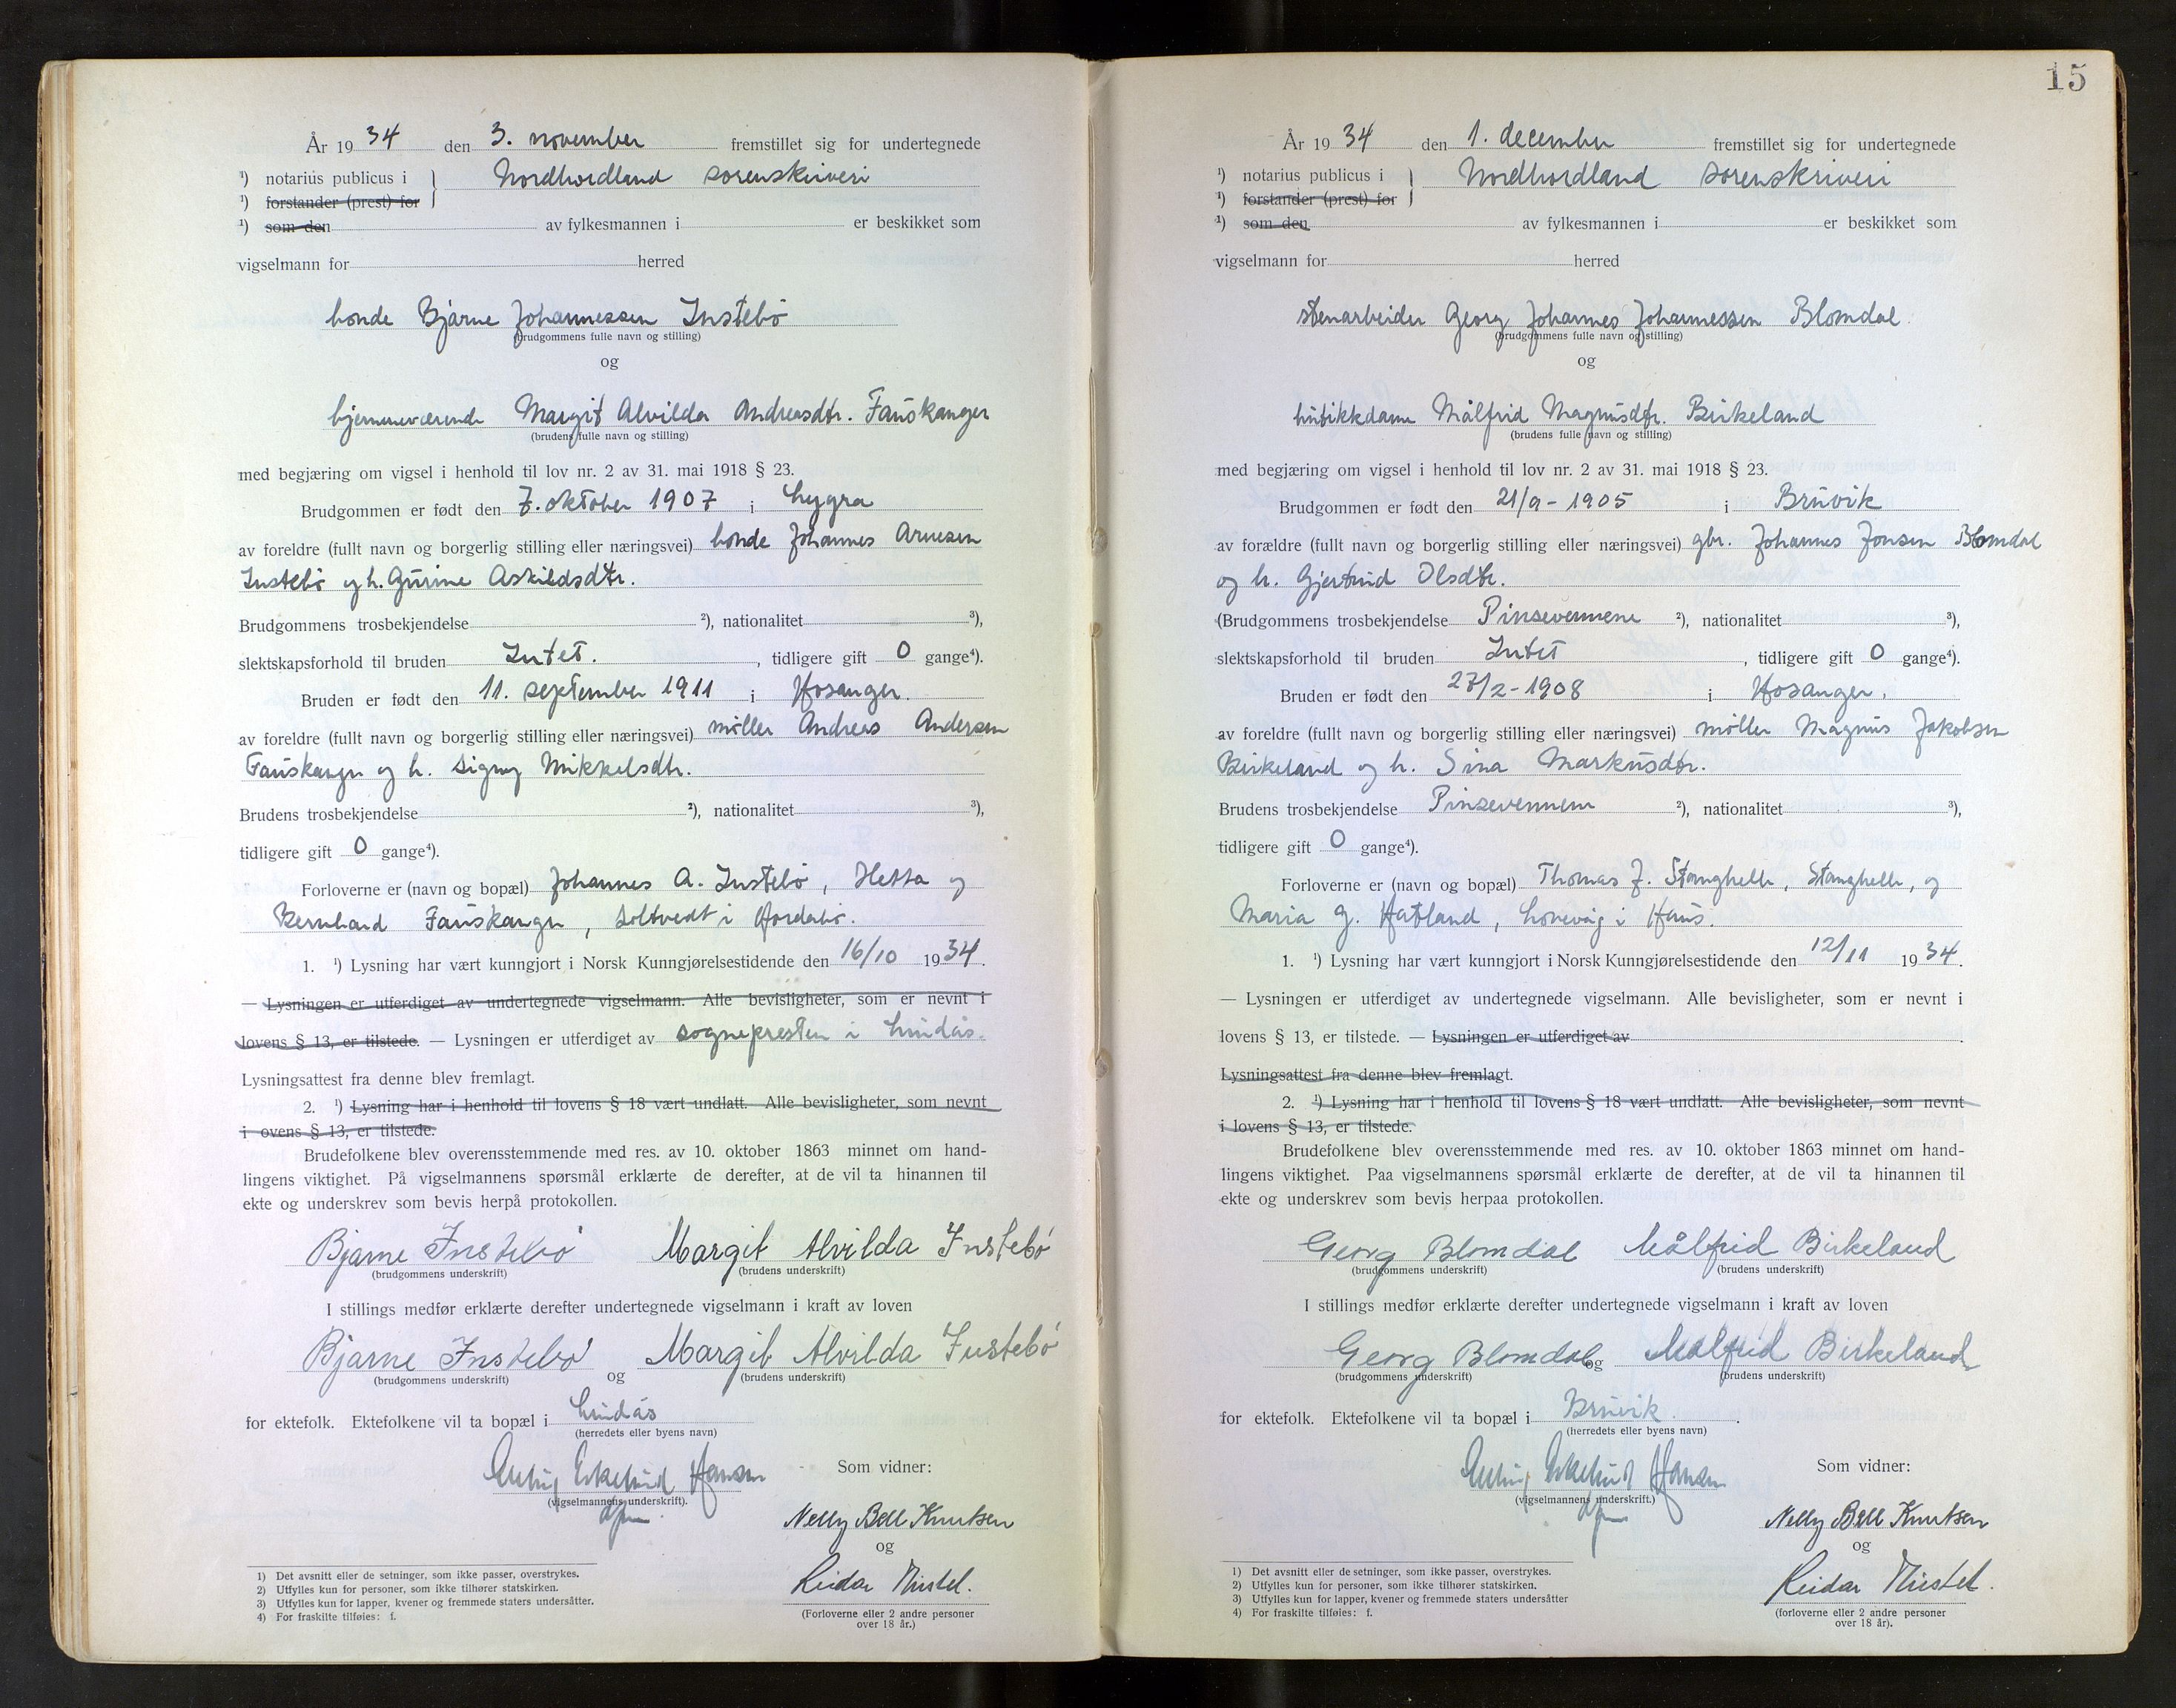 År 1934 den 3. november fremstillet sig for undertegnede
¹) notarius publicus i Nordhordland sorenskriveri
¹) forstander (prest) for
¹) som den av fylkesmannen i er beskikket som
vigselmann for herred
bonde Bjarne Johannessen Instebö
(brudgommens fulle navn og stilling)
og
hjemmeværende Margit Alvilda Andreasdtr. Fauskanger
(brudens fulle navn og stilling)
med begjæring om vigsel i henhold til lov nr. 2 av 31. mai 1918 § 23.
Brudgommen er født den 7. oktober 1907 i Lygra
av foreldre (fullt navn og borgerlig stilling eller næringsvei) bonde Johannes Arnesen
Instebö og h. Gurine Askildsdtr.
Brudgommens trosbekjendelse ²), nationalitet ³),
slektskapsforhold til bruden Intet. , tidligere gift 0 gange⁴).
Bruden er født den 11. september 1911 i Hosanger.
av foreldre (fullt navn og borgerlig stilling eller næringsvei) møller Andreas Andersen
Fauskanger og h. Signy Mikkelsdtr.
Brudens trosbekjendelse ²), nationalitet ³),
tidligere gift 0 gange⁴).
Forloverne er (navn og bopæl) Johannes A. Instebö, Hetta og
Bernhard Fauskanger, Soltvedt i Hordabö.
1. ¹) Lysning har vært kunngjort i Norsk Kunngjørelsestidende den 16/10 1934.
— Lysningen er utferdiget av undertegnede vigselmann. Alle bevisligheter, som er nevnt i
lovens § 13, er tilstede. — Lysningen er utferdiget av sognepresten i Lindås.
Lysningsattest fra denne blev fremlagt.
2. ¹) Lysning har i henhold til lovens § 18 vært undlatt. Alle bevisligheter, som nevnt
i ovens § 13, er tilstede.
Brudefolkene blev overensstemmende med res. av 10. oktober 1863 minnet om hand-
lingens viktighet. På vigselmannens spørsmål erklærte de derefter, at de vil ta hinannen til
ekte og underskrev som bevis herpå protokollen.
Bjarne Instebö Margit Alvilda Instebö
(brudgommens underskrift) (brudens underskrift)
I stillings medfør erklærte derefter undertegnede vigselmann i kraft av loven
Bjarne Instebö og Margit Alvilda Instebö
(brudgommens underskrift) (brudens underskrift)
for ektefolk. Ektefolkene vil ta bopæl i Lindås
(herredets eller byens navn)
Hansen
(vigselmannens underskrift).
Som vidner:
Nelly Bell Knutsen
og
Reidar
(Forloverne eller 2 andre personer
over 18 år.)
1) Det avsnitt eller de setninger, som ikke passer, overstrykes.
2) Utfylles kun for personer, som ikke tilhører statskirken.
3) Utfylles kun for lapper, kvener og fremmede staters undersåtter.
4) For fraskilte tilføies: f.
15
År 1934 den 1. december fremstillet sig for undertegnede
¹) notarius publicus i Nordhordland sorenskriveri
¹) forstander (prest) for
¹) som den av fylkesmannen i er beskikket som
vigselmann for herred
stenarbeider Georg Johannes Johannessen Blomdal
(brudgommens fulle navn og stilling)
og
butikkdame Målfrid Magnusdtr. Birkeland
(brudens fulle navn og stilling)
med begjæring om vigsel i henhold til lov nr. 2 av 31. mai 1918 § 23.
Brudgommen er født den 21/9-1905 i Bruvik
av forældre (fullt navn og borgerlig stilling eller næringsvei) gbr. Johannes Jonsen Blomdal
og h. Gjertrud Olsdtr.
(Brudgommens trosbekjendelse Pinsevennene ²), nationalitet ³),
slektskapsforhold til bruden Intet , tidligere gift 0 gange⁴).
Bruden er født den 27/2-1908 i Hosanger.
av foreldre (fullt navn og borgerlig stilling eller næringsvei) møller Magnus Jakobsen
Birkeland og h. Sina Markusdtr.
Brudens trosbekjendelse Pinsevennene ²), nationalitet ³),
tidligere gift 0 gange⁴).
Forloverne er (navn og bopæl) Thomas J. Stanghelle, Stanghelle, og
Maria G. Hatland, Lonevåg i Haus.
1. ¹) Lysning har vært kunngjort i Norsk Kunngjørelsestidende den 12/11 1934.
— Lysningen er utferdiget av undertegnede vigselmann. Alle bevisligheter, som er nevnt i
lovens § 13, er tilstede. — Lysningen er utferdiget av
Lysningsattest fra denne blev fremlagt.
2. ¹) Lysning har i henhold til lovens § 18 vært undlatt. Alle bevisligheter, som nevnt
i lovens § 13, er tilstede.
Brudefolkene blev overensstemmende med res. av 10. oktober 1863 minnet om hand-
lingens viktighet. Paa vigselmannens spørsmål erklærte de derefter, at de vil ta hinannen til
ekte og underskrev som bevis herpaa protokollen.
Georg Blomdal Målfrid Birkeland
(brudgommens underskrift) (brudens underskrift)
I stillings medfør erklærte derefter undertegnede vigselmann i kraft av loven
Georg Blomdal og Målfrid Birkeland
(brudgommens underskrift) (brudens underskrift)
for ektefolk. Ektefolkene vil ta bopæl i Bruvik.
(herredets eller byens navn)
Hansen
(vigselmannens underskrift.)
Som vidner:
Nelly Bell Knutsen
og
Reidar
(forloverne eller 2 andre personer
over 18 år).
1) Det avsnitt eller de setninger, som ikke passer, overstrykes.
2) Utfylles kun for personer, som ikke tilhører statskirken.
3) Utfylles kun for lapper, kvener og fremmede staters undersåtter
4) For fraskilte tilføies: f.